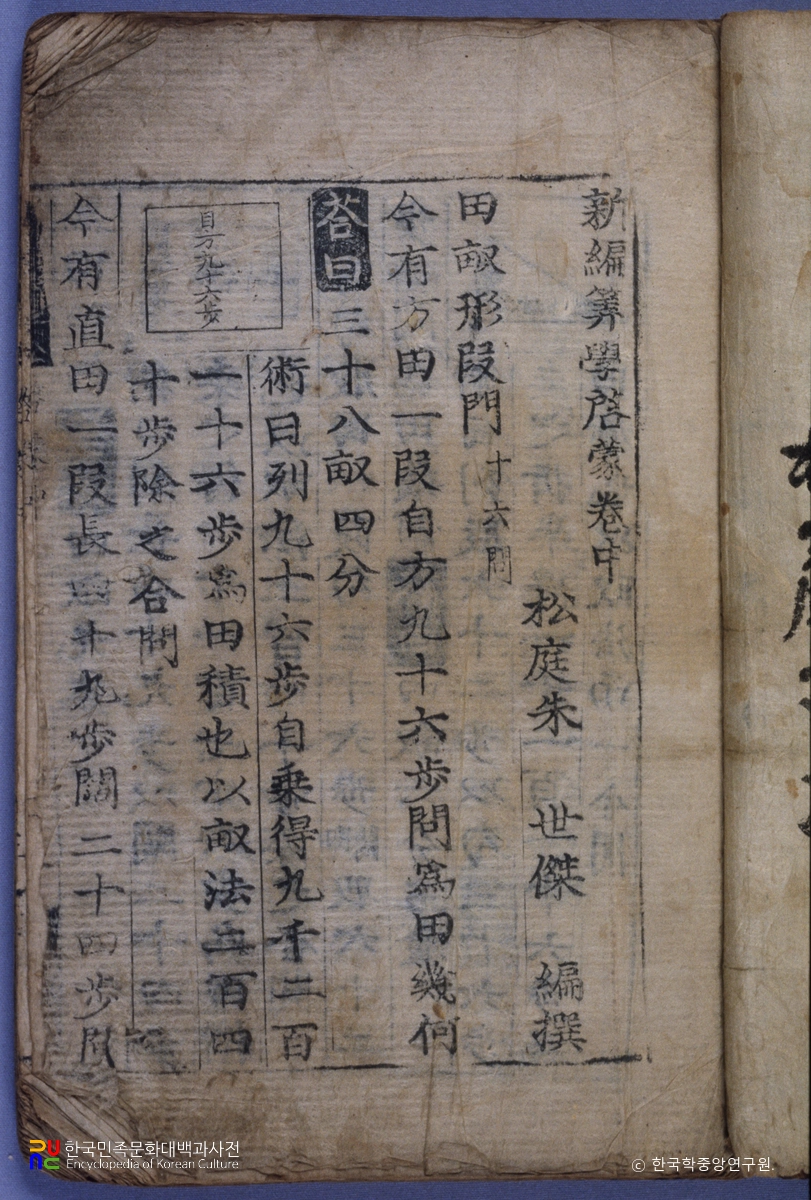 新編筭學啓蒙卷中
松庭朱 世傑 編撰
田畝形段門 十六問
今有方田一段自方九十六步問爲田幾何
荅曰 三十八畝四分
自方九十六步
術曰列九十六步自乗得九千二百
一十六步爲田積也以畝法二百四
十步除之合問
今有直田一段長四十九步闊二十四步問
한국민족문화대백과사전
Encyclopedia of Korean Culture
© 한국학중앙연구원.